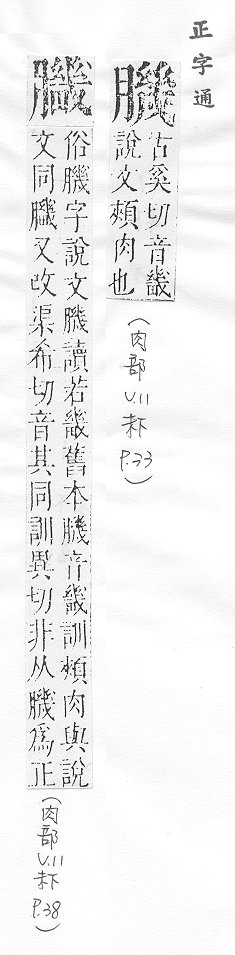 正字通
𦠄
古奚切音畿
說文頰肉也
(肉部
V.11
未下
P.33)
俗𦠄字說文𦠄讀若畿舊本𦠄音畿訓頰肉與說
文同𦠄又改渠希切音其同訓異切非从𦠄爲正
(肉部
V.11
未下
P.38)